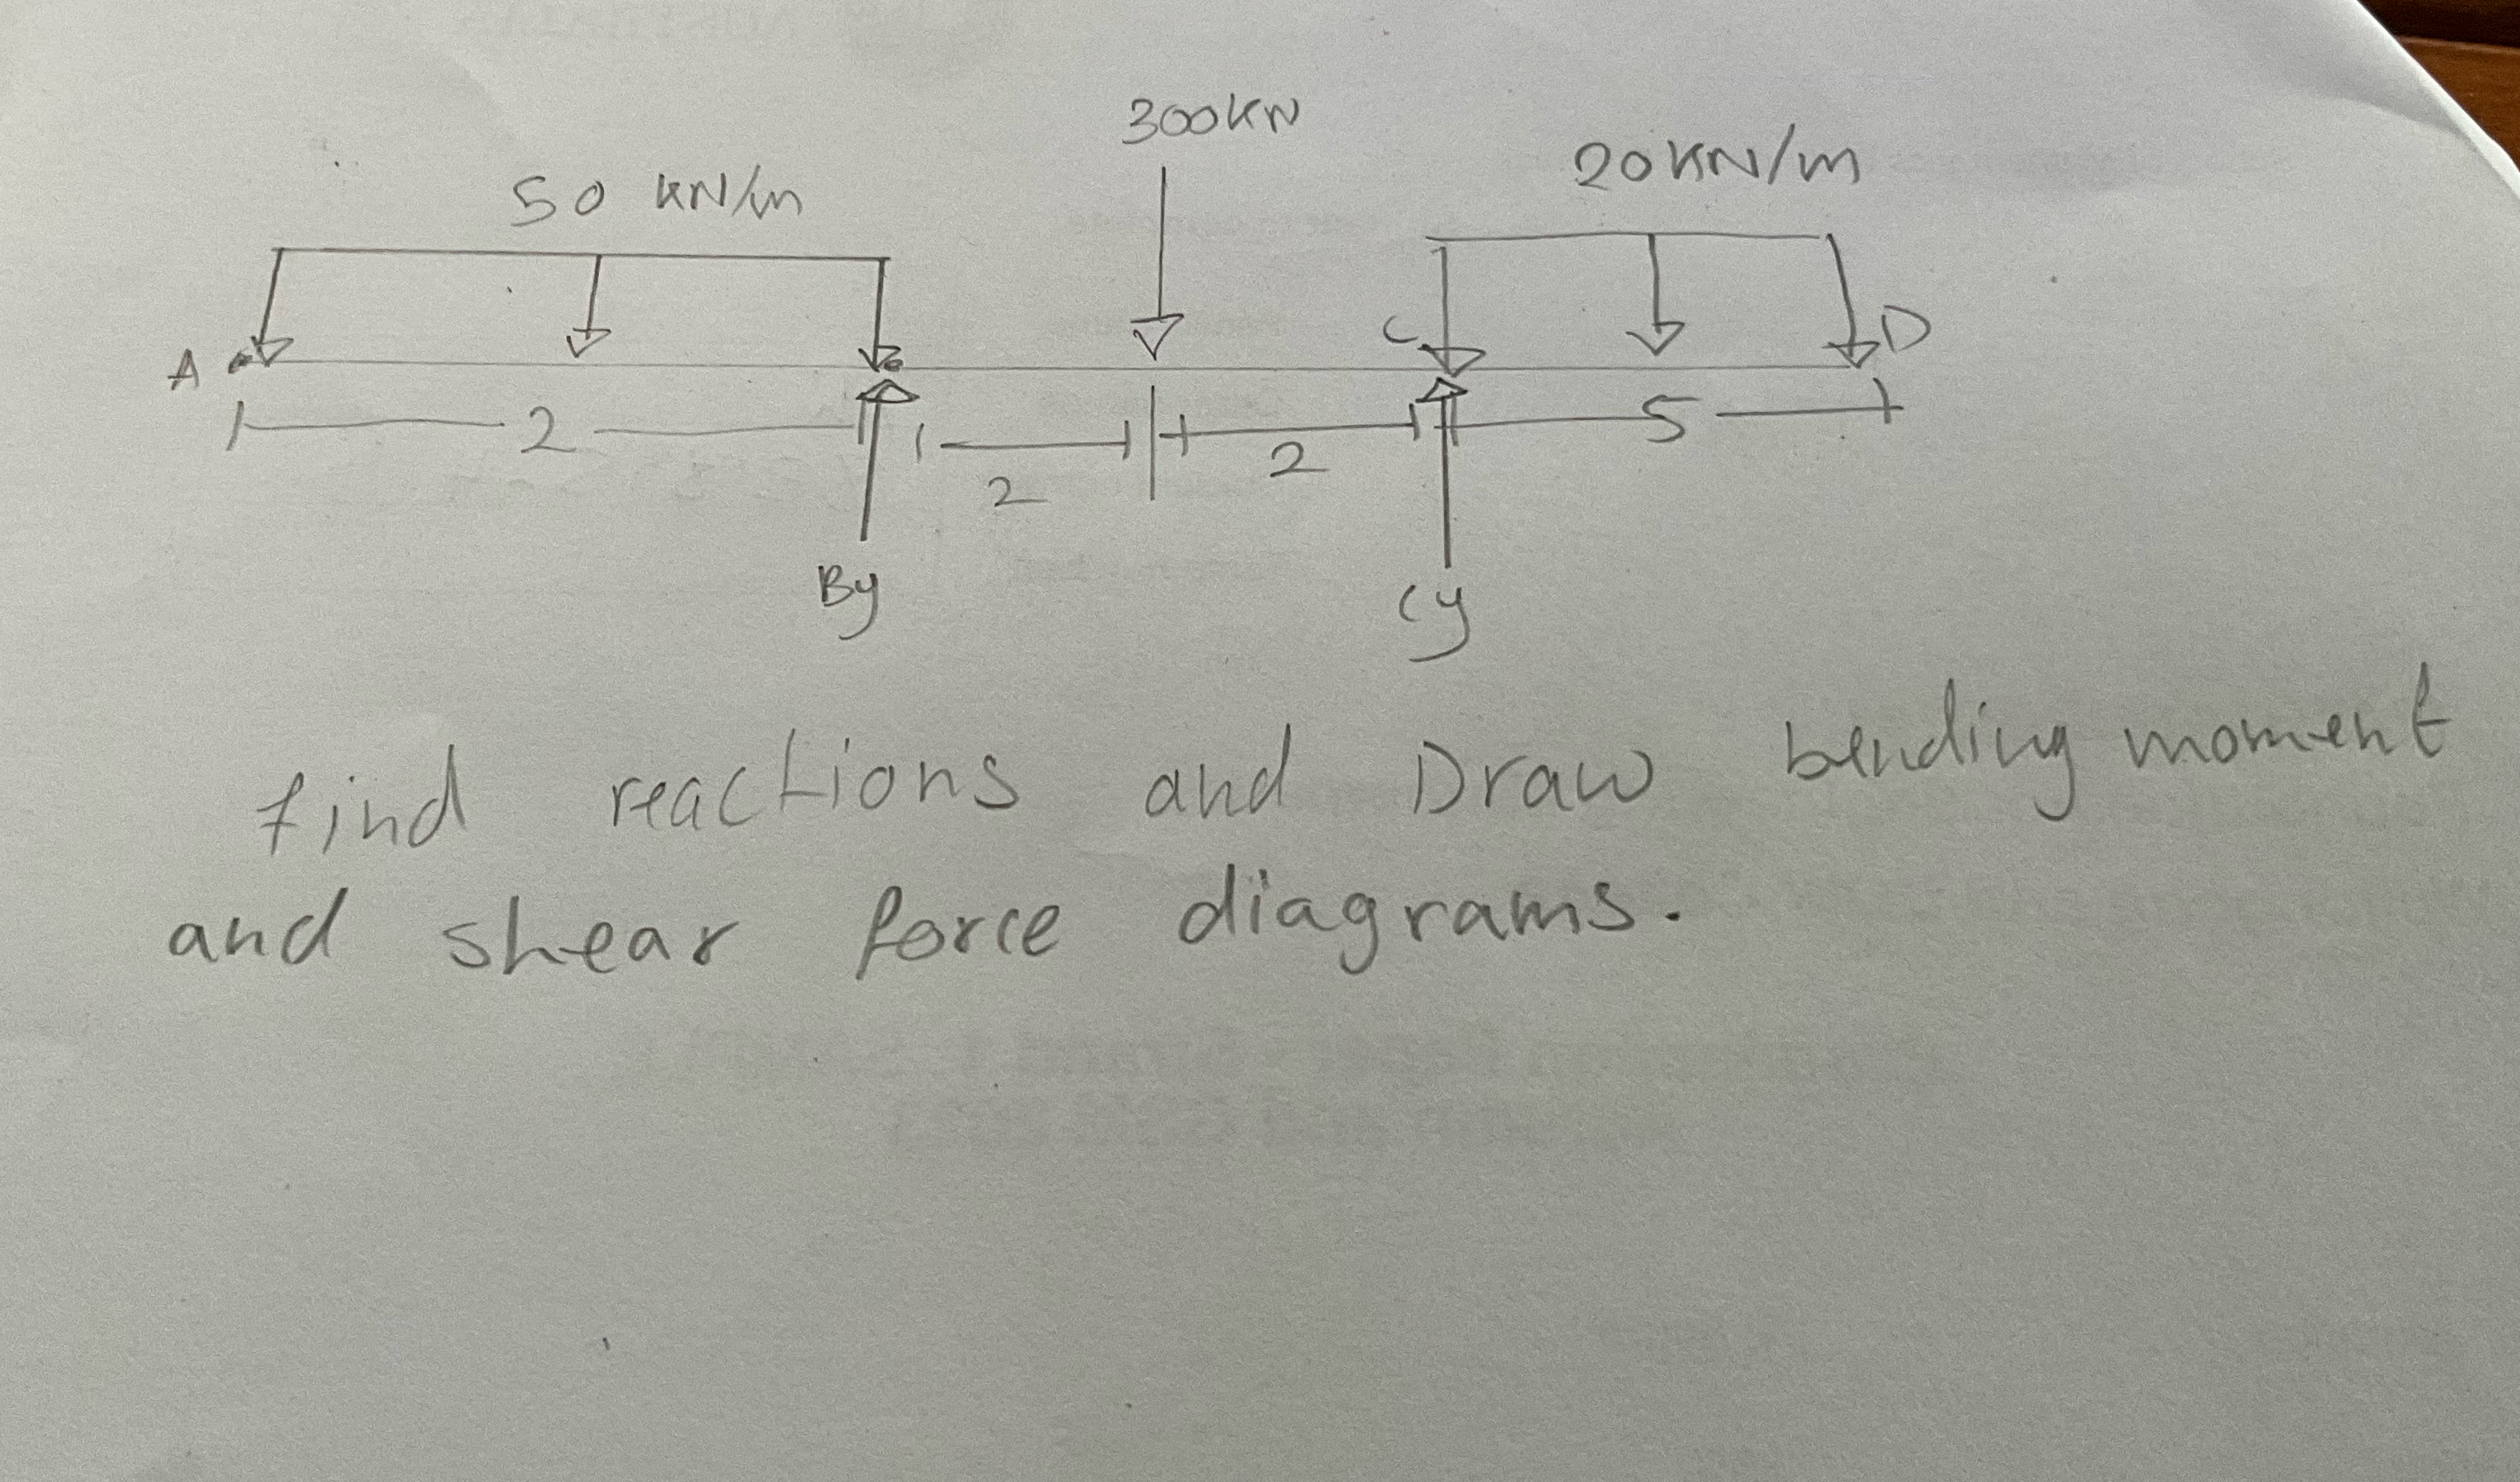 300KN
50 KN/m
20KN/m
A
B
C
D
2
2
2
5
By
Cy
find reactions and Draw bending moment
and shear force diagrams.